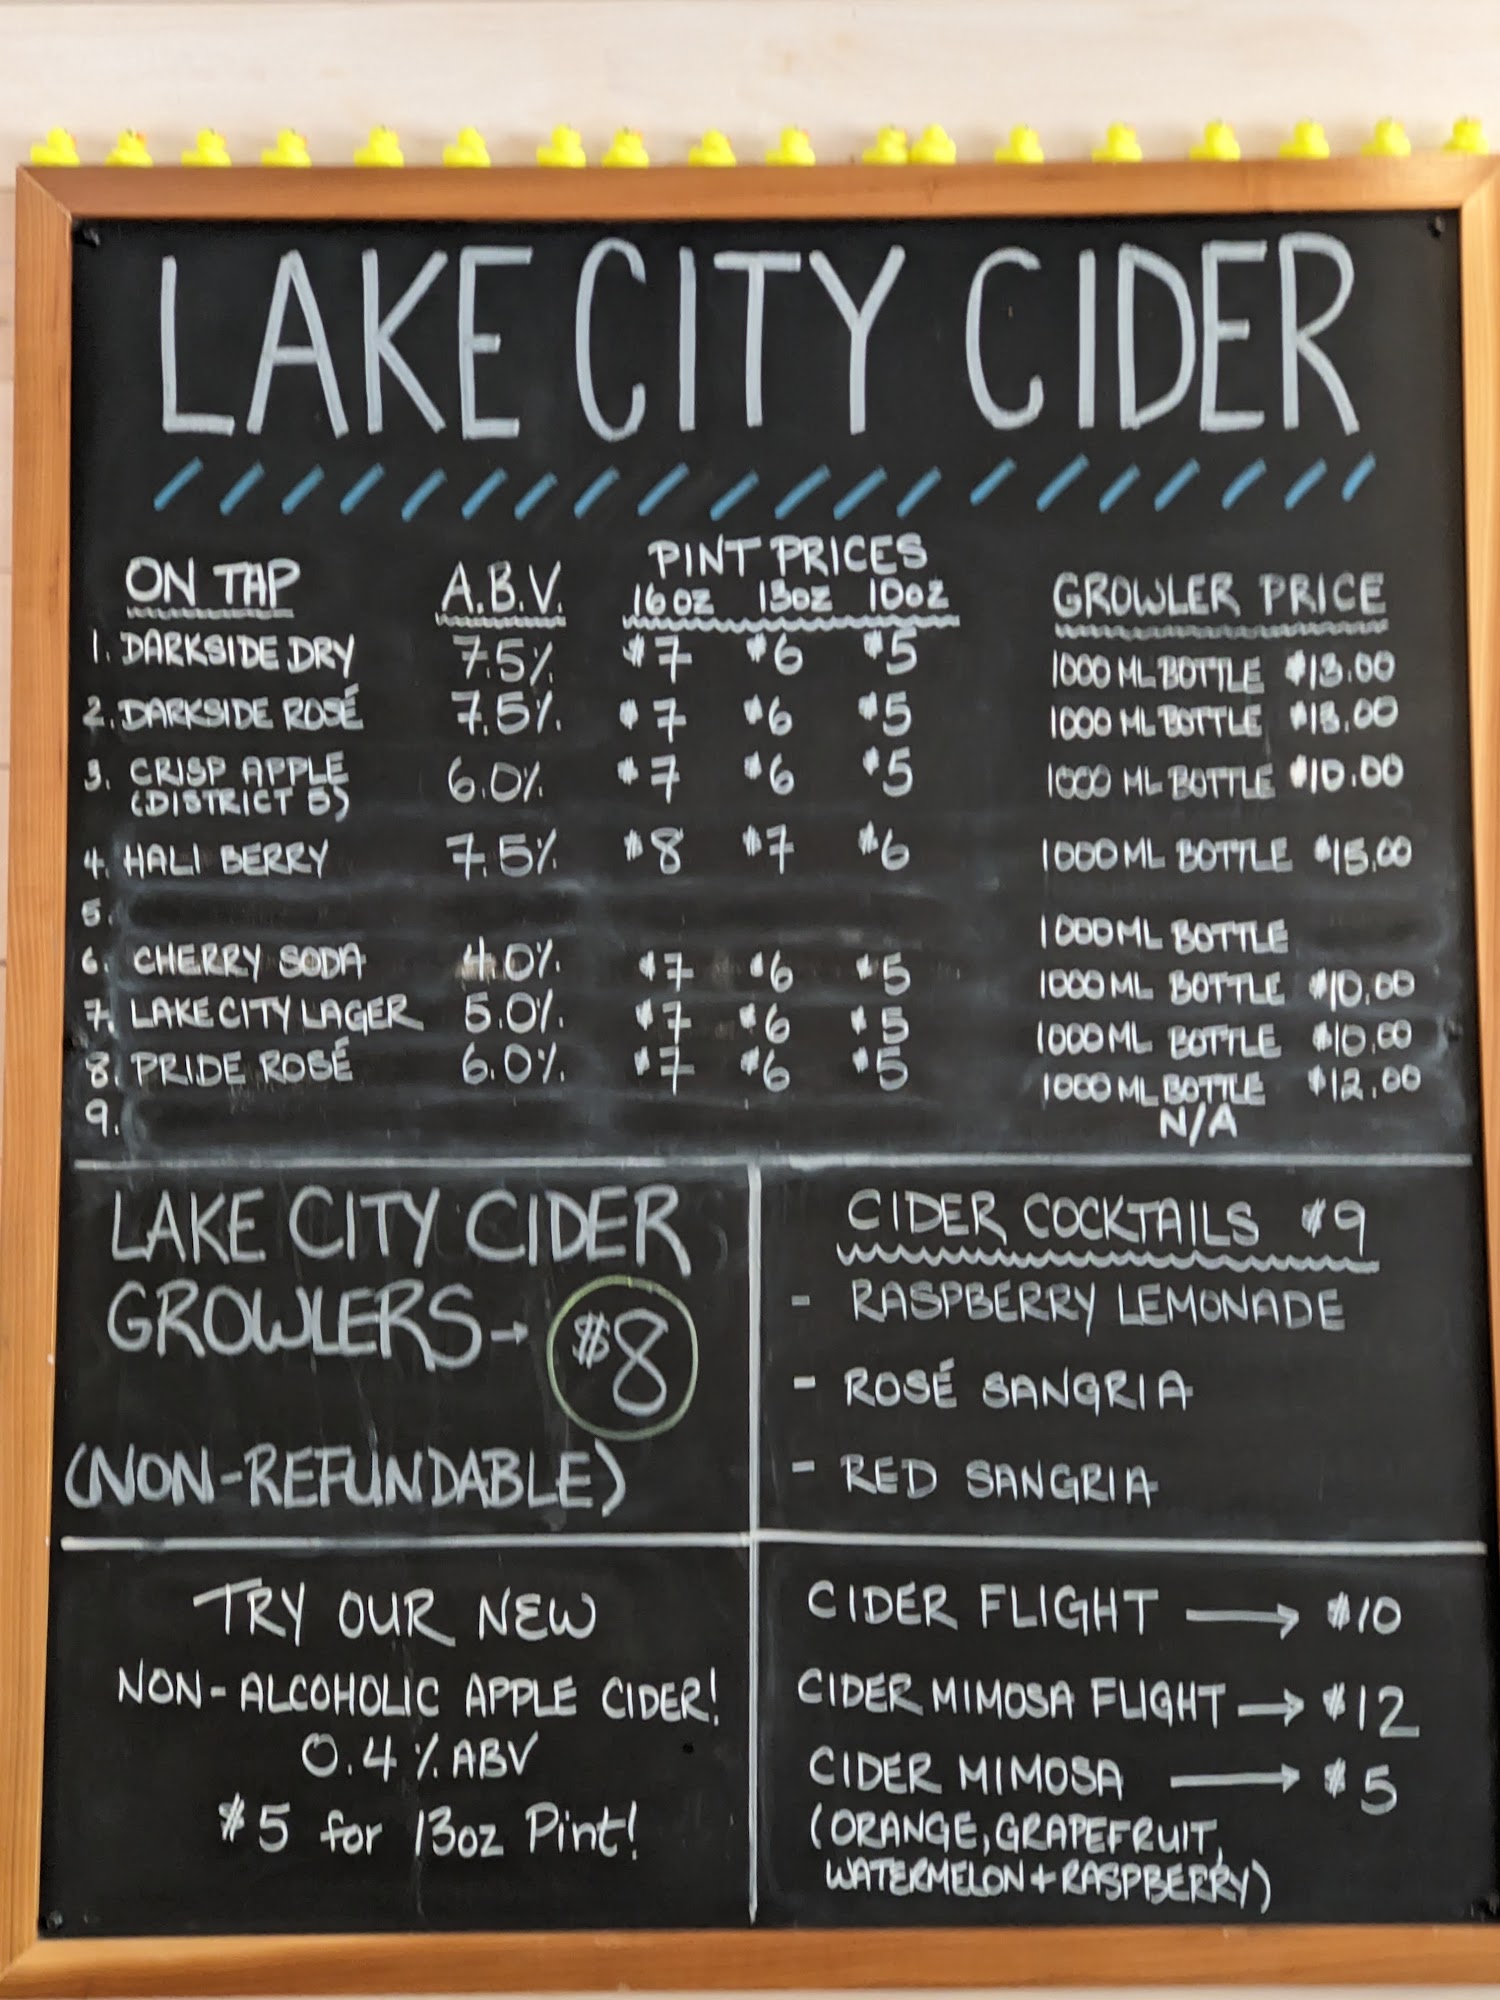 LAKE CITY CIDER
ON TAP A.B.V. PINT PRICES GROWLER PRICE
16oz 13oz 10oz
1. DARKSIDE DRY 7.5% $7 $6 $5 1000 ML BOTTLE $13.00
2. DARKSIDE ROSÉ 7.5% $7 $6 $5 1000 ML BOTTLE $13.00
3. CRISP APPLE 6.0% $7 $6 $5 1000 ML BOTTLE $10.00
(DISTRICT 5)
4. HALI BERRY 7.5% $8 $7 $6 1000 ML BOTTLE $15.00
5. 1000 ML BOTTLE
6. CHERRY SODA 4.0% $7 $6 $5 1000 ML BOTTLE $10.00
7. LAKE CITY LAGER 5.0% $7 $6 $5 1000 ML BOTTLE $10.00
8. PRIDE ROSÉ 6.0% $7 $6 $5 1000 ML BOTTLE $12.00
9. N/A
LAKE CITY CIDER
GROWLERS → $8
(NON-REFUNDABLE)
CIDER COCKTAILS $9
- RASPBERRY LEMONADE
- ROSÉ SANGRIA
- RED SANGRIA
TRY OUR NEW
NON-ALCOHOLIC APPLE CIDER!
0.4% ABV
$5 for 13oz Pint!
CIDER FLIGHT → $10
CIDER MIMOSA FLIGHT → $12
CIDER MIMOSA → $5
(ORANGE, GRAPEFRUIT,
WATERMELON + RASPBERRY)